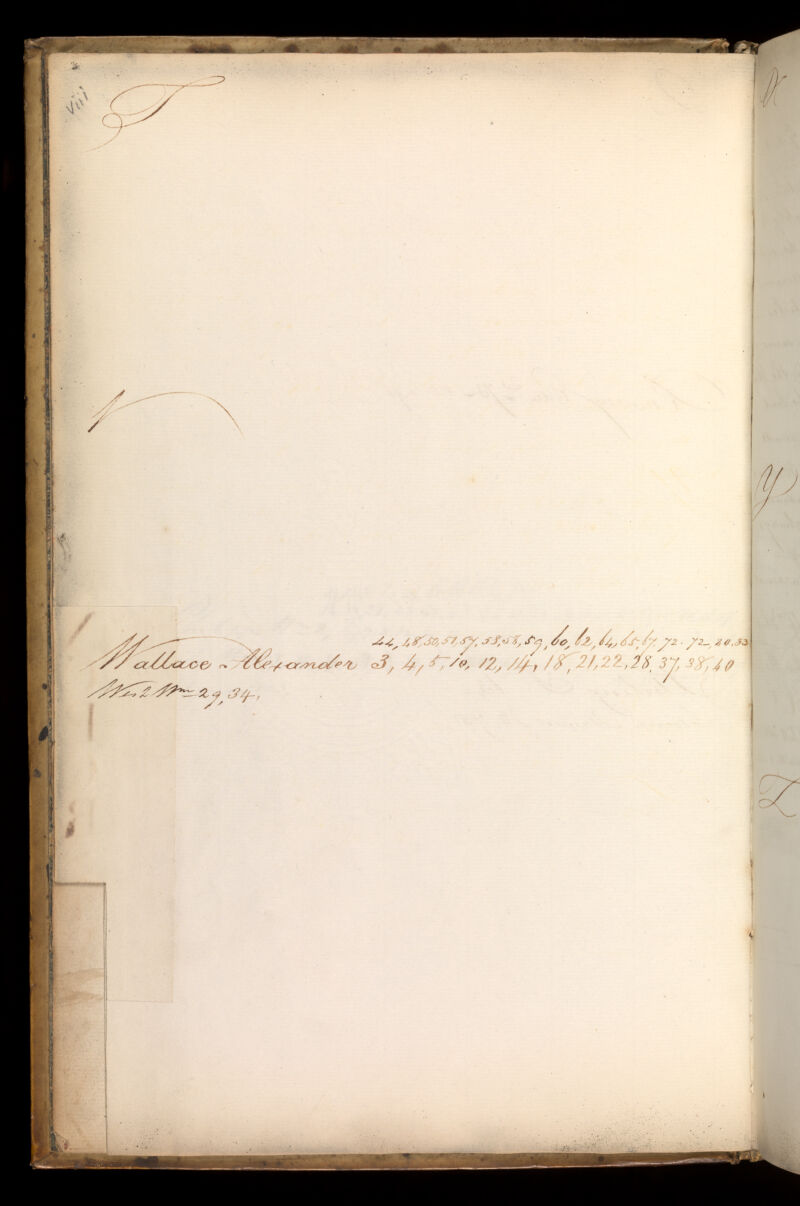 viii
T
V
44, 48, 50, 51, 57, 58, 58, 59, 60, 62, 64, 65, 67, 72. 72
Wallace Alexander 3, 4, 5, 10, 12, 14, 18, 21, 22, 28, 37, 38, 40
Wm 29, 34.
X
Y
Z